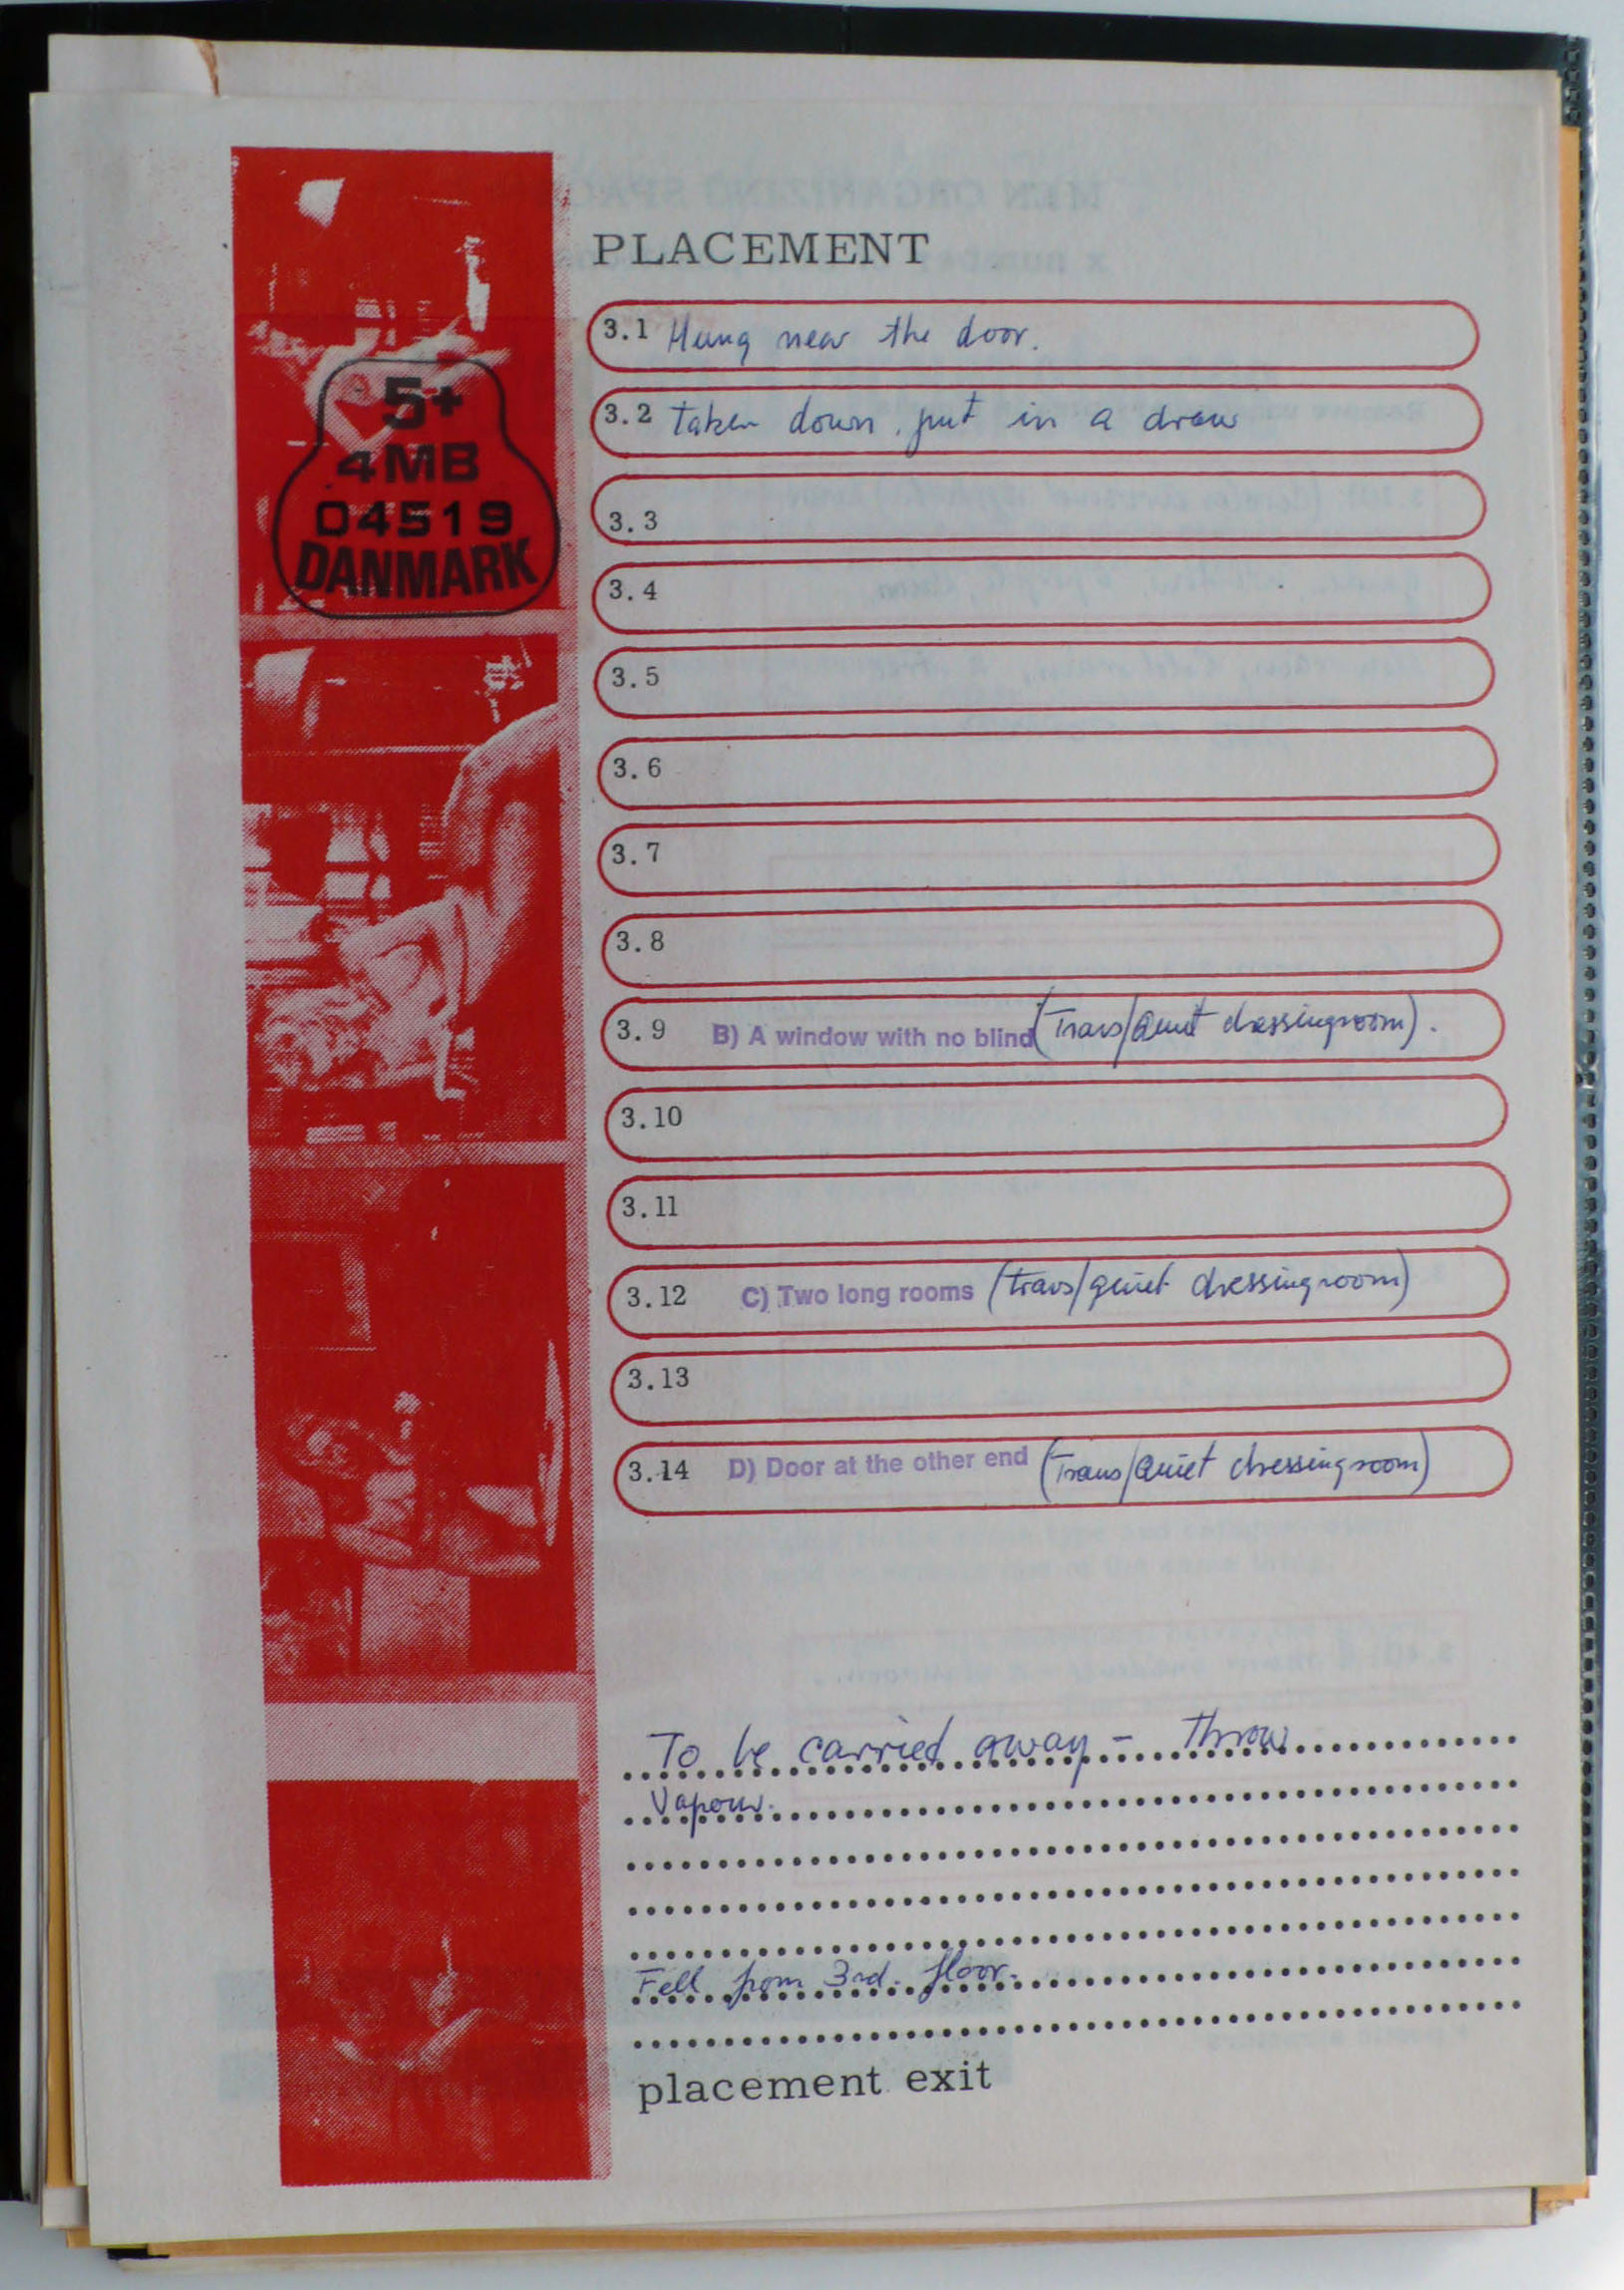 PLACEMENT
3.1 Hung near the door.
3.2 taken down, put in a draw
3.3
3.4
3.5
3.6
3.7
3.8
3.9 B) A window with no blind (Trans/quiet dressingroom).
3.10
3.11
3.12 C) Two long rooms (trans/quiet dressingroom)
3.13
3.14 D) Door at the other end (Trans/quiet dressingroom)
5+
4MB
04519
DANMARK
To be carried away - Throw
Vapour.
Fell from 3rd. floor.
placement exit